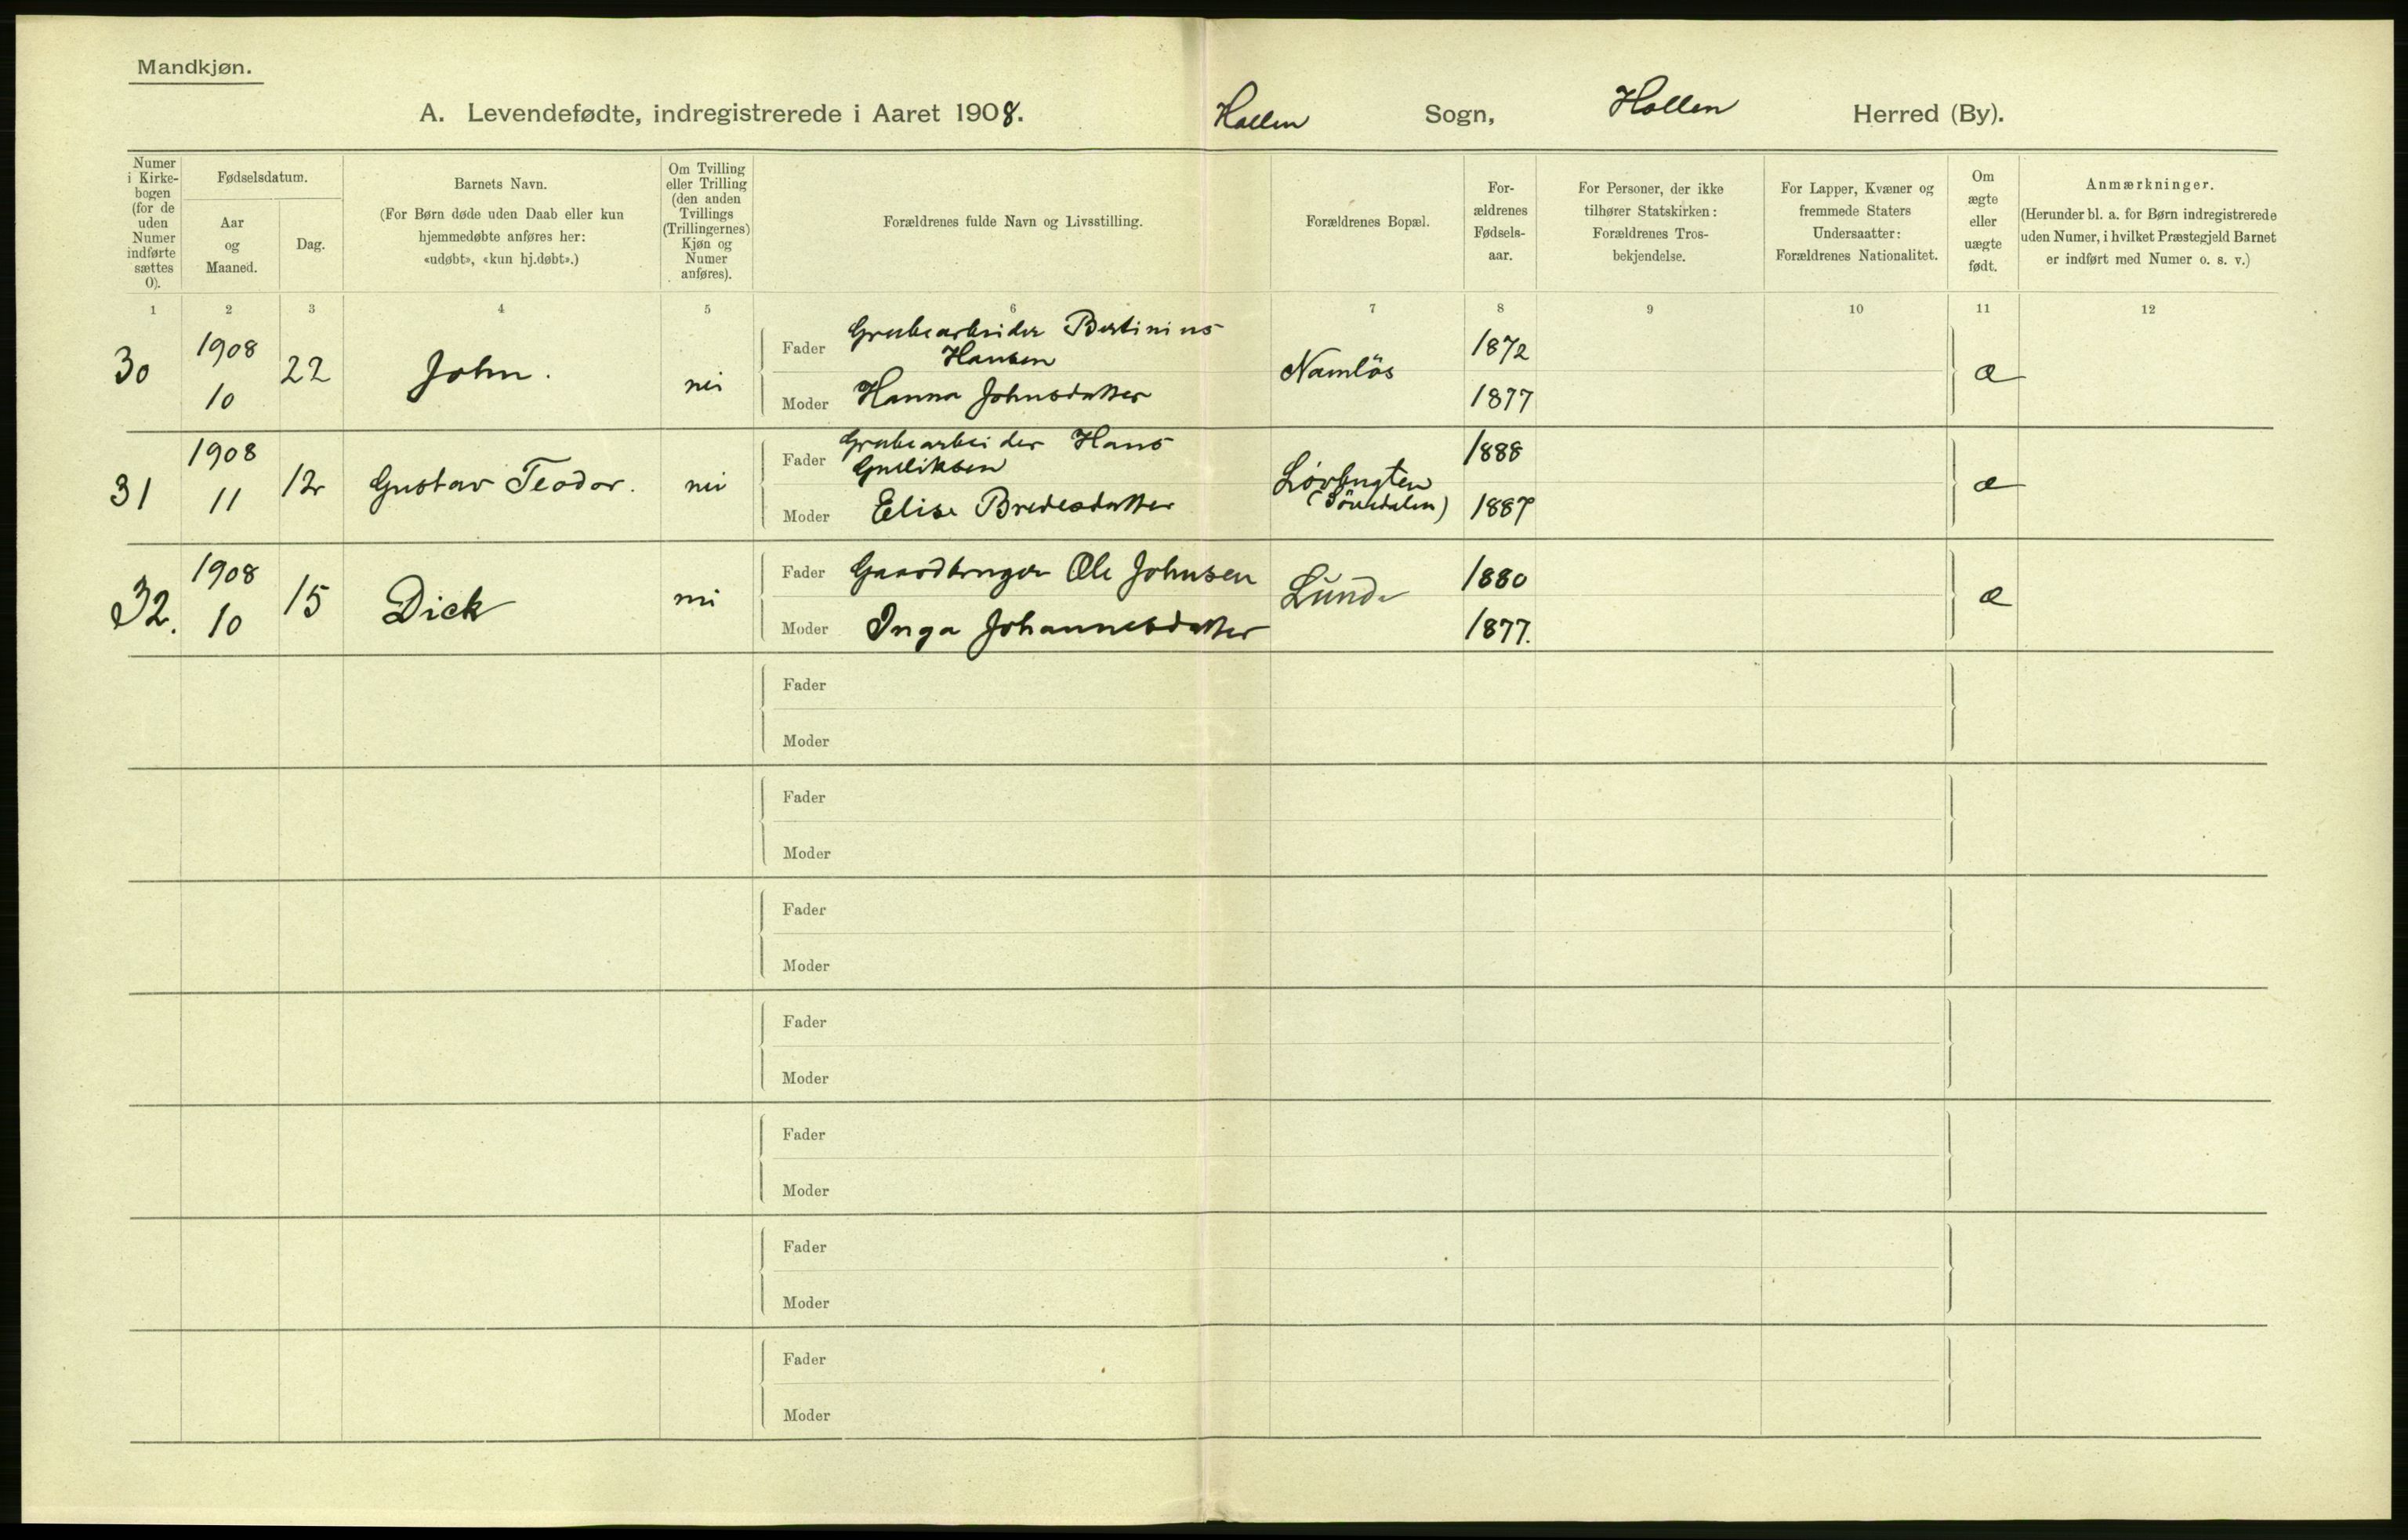 Mandkjøn.
A. Levendefødte, indregistrerede i Aaret 1908. Hollen Sogn, Hollen Herred (By).
Numer i Kirke-
bogen
(for de
uden
Numer
indførte
sættes
0).
Fødselsdatum.
Aar
og
Maaned.
Dag.
Barnets Navn.
(For Børn døde uden Daab eller kun
hjemmedøbte anføres her:
«udøbt», «kun hj.døbt».)
Om Tvilling
eller Trilling
(den anden
Tvillings
(Trillingernes)
Kjøn og
Numer
anføres).
Forældrenes fulde Navn og Livsstilling.
Forældrenes Bopæl.
For-
ældrenes
Fødsels-
aar.
For Personer, der ikke
tilhører Statskirken:
Forældrenes Tros-
bekjendelse.
For Lapper, Kvæner og
fremmede Staters
Undersaatter:
Forældrenes Nationalitet.
Om
ægte
eller
uægte
født.
Anmærkninger.
(Herunder bl. a. for Børn indregistrerede
uden Numer, i hvilket Præstegjeld Barnet
er indført med Numer o. s. v.)
1 2 3 4 5 6 7 8 9 10 11 12
30 1908 10 22 John. nei
Fader Grubearbeider Bertinius
Hansen
Moder Hanna Johnsdatter
Namløs 1872 1877 æ
31 1908 11 12 Gustav Teodor. nei
Fader Grubearbeider Hans
Gulliksen
Moder Elise Bredesdatter
1888 1887 æ
32. 1908 10 15 Dick nei
Fader Gaardbruger Ole Johnsen
Moder Inga Johannesdatter
Lunde 1880 1877. æ
Fader
Moder
Fader
Moder
Fader
Moder
Fader
Moder
Fader
Moder
Fader
Moder
Fader
Moder